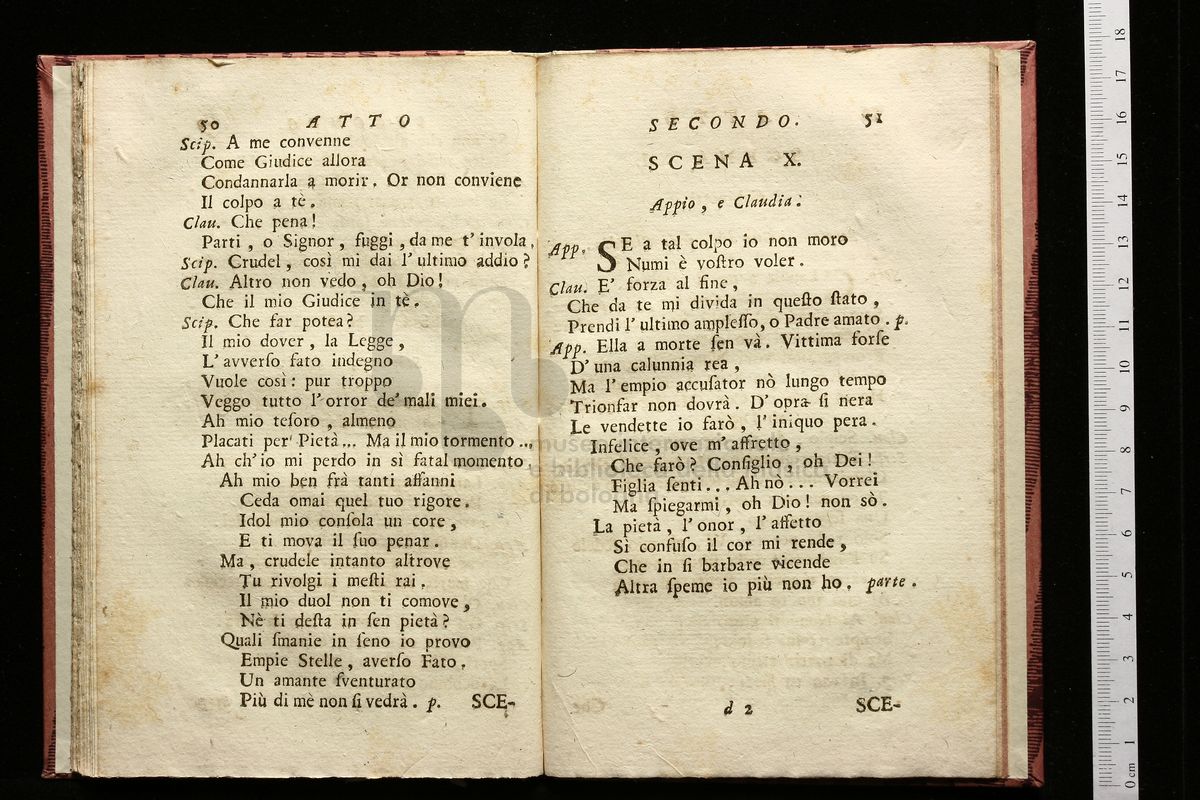 50 ATTO
Scip. A me convenne
Come Giudice allora
Condannarla a morir. Or non conviene
Il colpo a tè.
Clau. Che pena!
Parti, o Signor, fuggi, da me t'invola,
Scip. Crudel, così mi dai l'ultimo addio?
Clau. Altro non vedo, oh Dio!
Che il mio Giudice in tè.
Scip. Che far potea?
Il mio dover, la Legge,
L'avverſo fato indegno
Vuole così: pur troppo
Veggo tutto l'orror de' mali miei.
Ah mio teſoro, almeno
Placati per Pietà... Ma il mio tormento...
Ah ch'io mi perdo in sì fatal momento,
Ah mio ben frà tanti affanni
Ceda omai quel tuo rigore.
Idol mio conſola un core,
E ti mova il ſuo penar.
Ma, crudele intanto altrove
Tu rivolgi i meſti rai.
Il mio duol non ti comove,
Nè ti deſta in ſen pietà?
Quali ſmanie in ſeno io provo
Empie Stelle, averſo Fato.
Un amante ſventurato
Più di mè non ſi vedrà. p. SCE-
SECONDO. 51
SCENA X.
Appio, e Claudia.
App. SE a tal colpo io non moro
Numi è voſtro voler.
Clau. E' forza al fine,
Che da te mi divida in queſto ſtato,
Prendi l'ultimo ampleſſo, o Padre amato. p.
App. Ella a morte ſen và. Vittima forſe
D'una calunnia rea,
Ma l'empio accuſator nò lungo tempo
Trionfar non dovrà. D'opra ſi nera
Le vendette io farò, l'iniquo pera.
Infelice, ove m'affretto,
Che farò? Conſiglio, oh Dei!
Figlia ſenti... Ah nò... Vorrei
Ma ſpiegarmi, oh Dio! non sò.
La pietà, l'onor, l'affetto
Sì confuſo il cor mi rende,
Che in ſi barbare vicende
Altra ſpeme io più non ho. parte.
d 2 SCE-